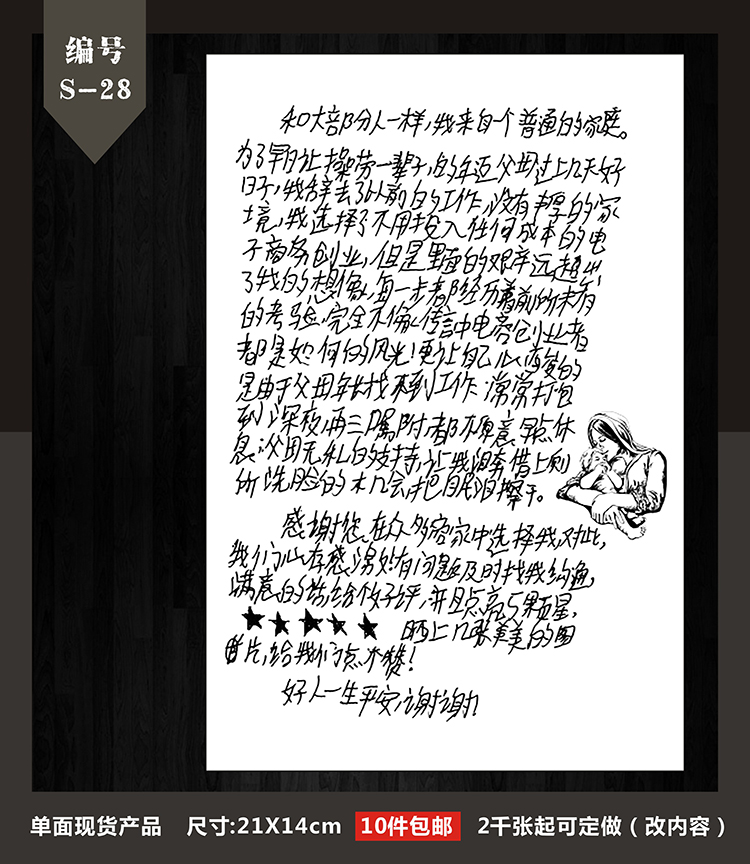 编号
S-28
和大部分人一样,我来自个普通的家庭。
为了早日让操劳一辈子的年迈父母过上几天好
日子,我辞去了以前的工作,没有丰厚的家
境,我选择了不用投入任何成本的电
子商务创业,但是里面的艰辛远超出
了我的想像,每一步都经历着前所未有
的考验,完全不像传言中电商创业者
都是如何的风光!更让自己心酸的
是由于父母年长找不到工作,常常打包
到深夜,再三嘱咐都不愿意早点休
息,父母无私的支持,让我只能借上厕
所洗脸的木几会把眼泪擦干。
感谢您在众多商家中选择我,对此,
我们心存感激,如有问题及时找我沟通,
满意的话给个好评,并且点亮5颗星,
★★★★★ 晒上几张美美的图
片,给我们点个赞!
好人一生平安,谢谢!
单面现货产品 尺寸:21X14cm 10件包邮 2千张起可定做(改内容)